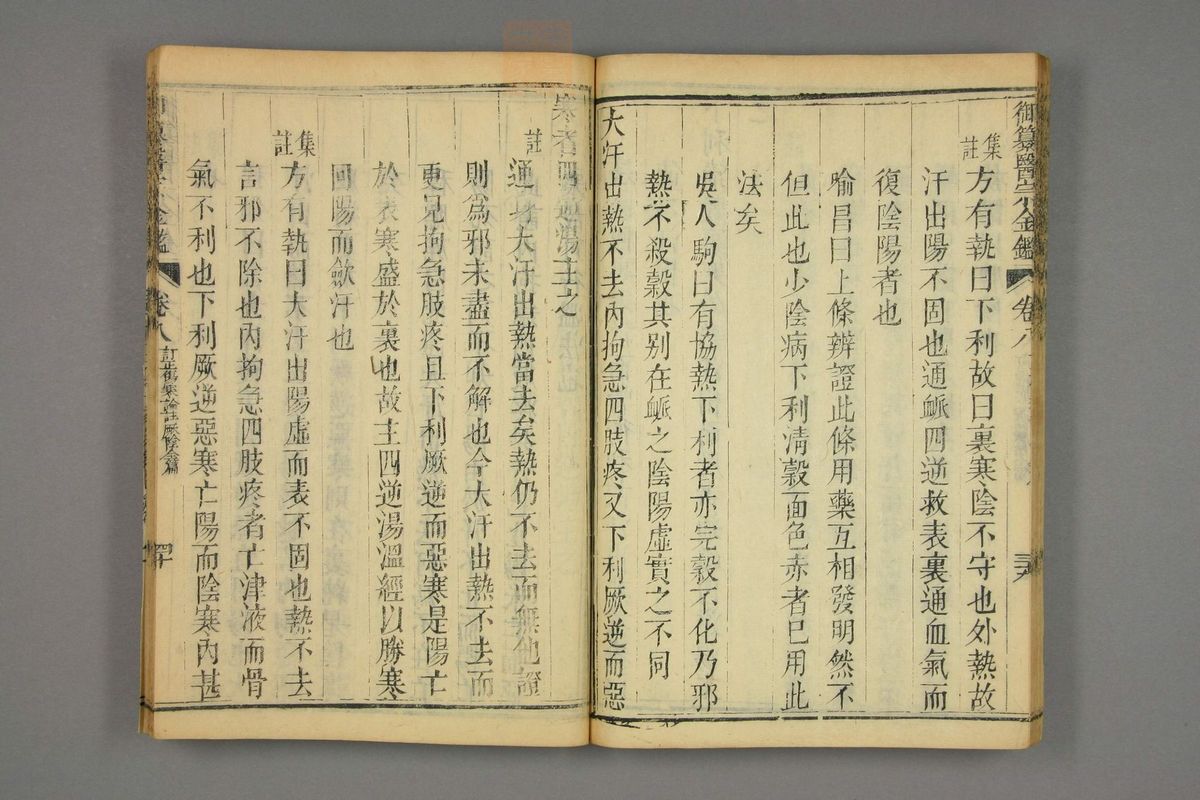 御纂醫宗金鑑
卷八
三十九
集註
方有執曰下利故曰裏寒陰不守也外熱故
汗出陽不固也通脈四逆救表裏通血氣而
復陰陽者也
喻昌曰上條辨證此條用藥互相發明然不
但此也少陰病下利清穀面色赤者已用此
法矣
吳人駒曰有協熱下利者亦完穀不化乃邪
熱不殺穀其別在脈之陰陽虛實之不同
大汗出熱不去內拘急四肢疼又下利厥逆而惡
寒者四逆湯主之
註
通身大汗出熱當去矣熱仍不去而無他證
則為邪未盡而不解也今大汗出熱不去而
更見拘急肢疼且下利厥逆而惡寒是陽亡
於表寒盛於裏也故主四逆湯溫經以勝寒
回陽而斂汗也
集註
方有執曰大汗出陽虛而表不固也熱不去
言邪不除也內拘急四肢疼者亡津液而骨
氣不利也下利厥逆惡寒亡陽而陰寒內甚
金鑑
卷八
四十